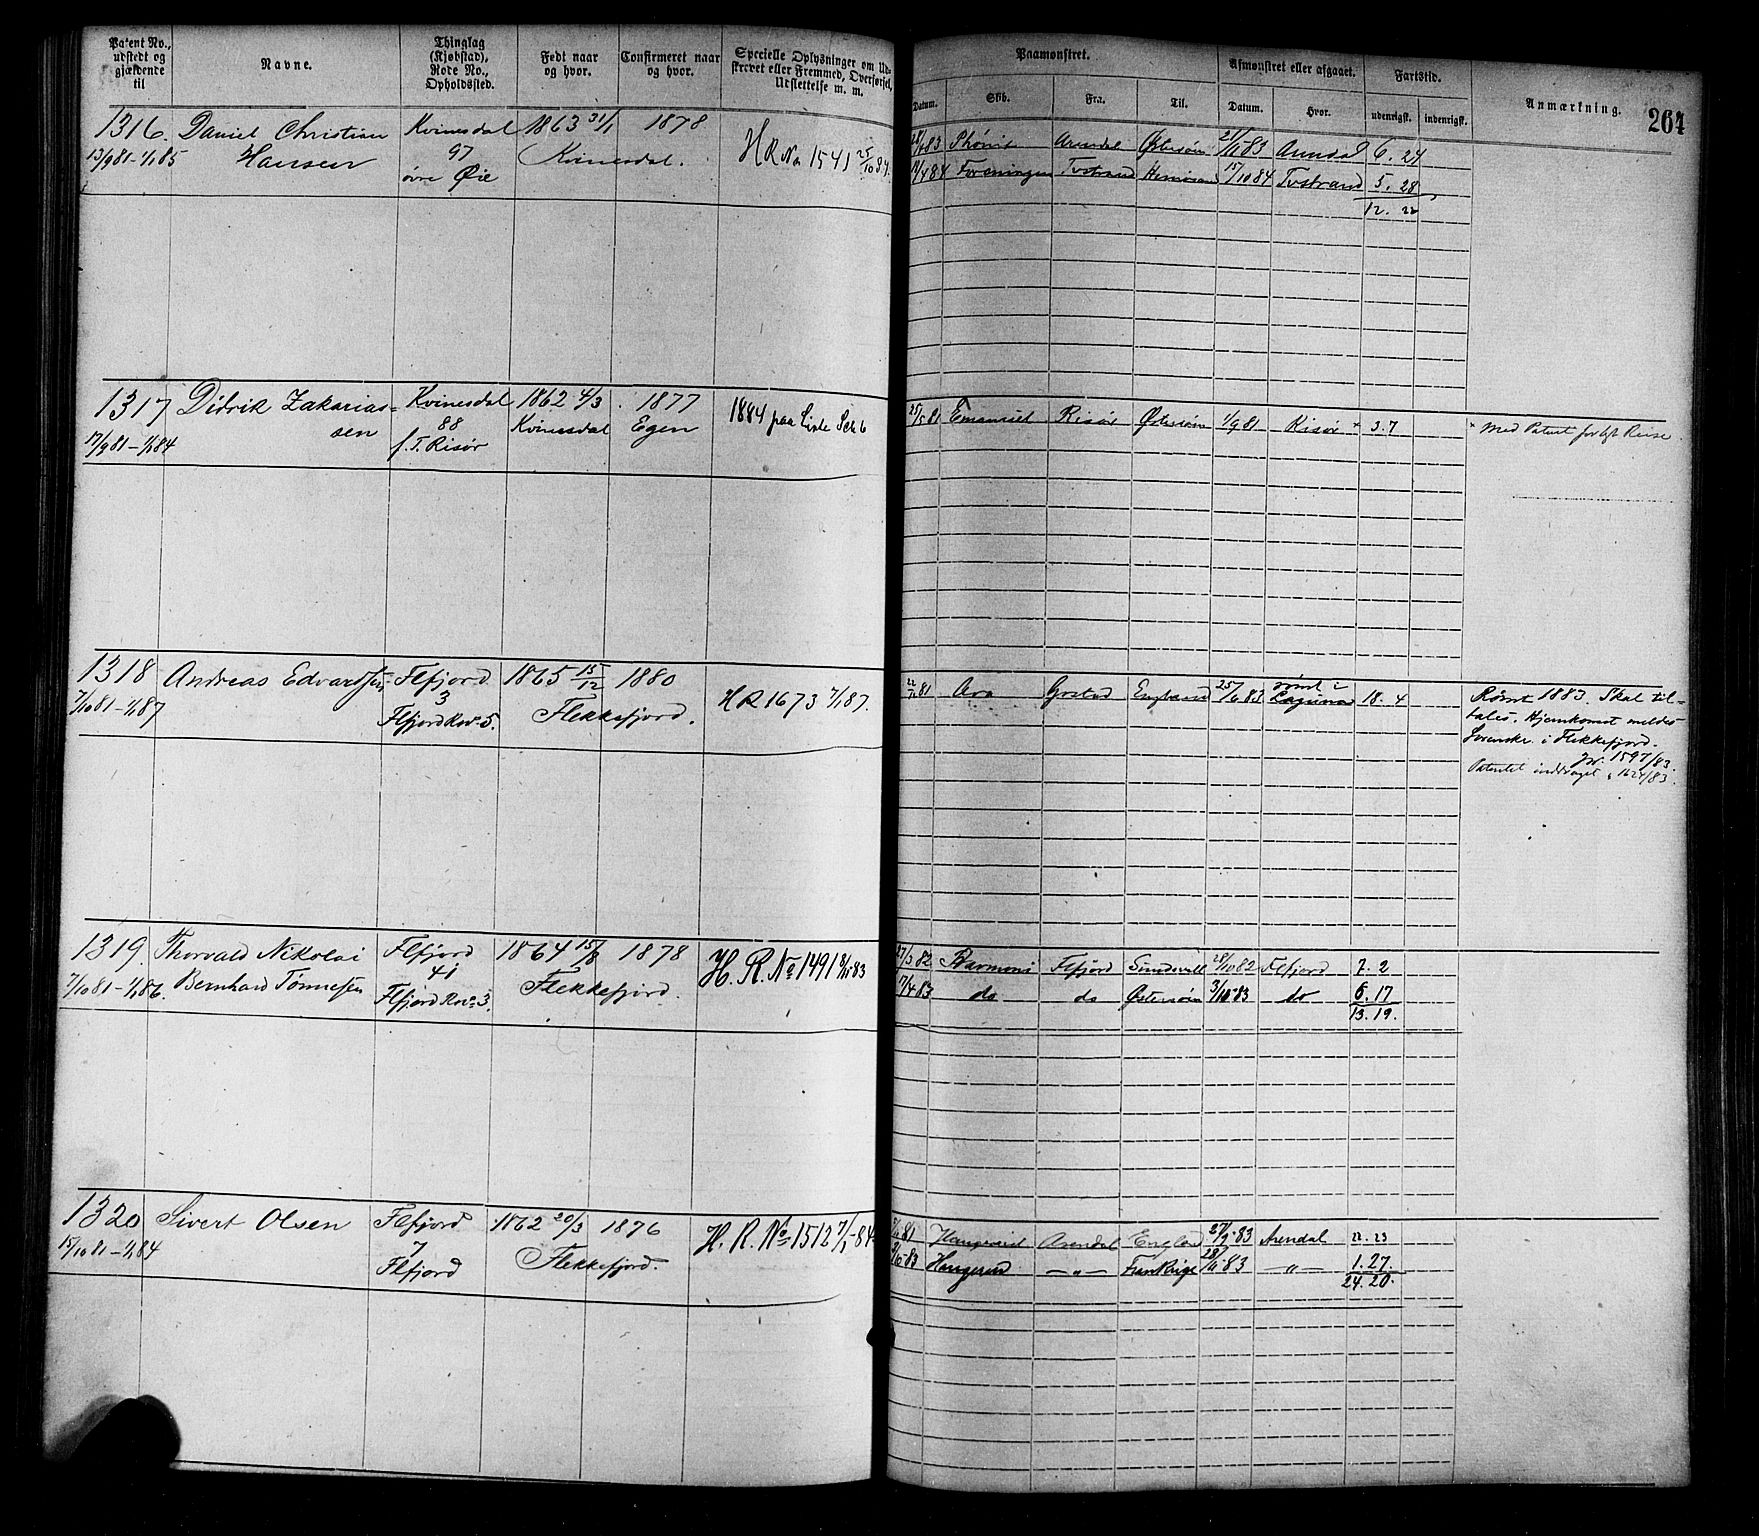 Patent No., udstedt og gjældende til
Navne.
Thinglag (Kjøbstad), Rode No., Opholdssted.
Født naar og hvor.
Confirmeret naar og hvor.
Specielle Oplysninger om Udskrevet eller Fremmed, Overførsel, Udslettelse m. m.
Paamønstret.
Afmønstret eller afgaaet.
Fartstid.
Anmærkning.
264
Datum. Skib. Fra. Til. Datum. Hvor. udenrigsk. indenrigsk.
1316. Daniel Christian Kvinesdal 1863 31/1 1878
13/9 81-1/1 85 Hansen 97 Kvinesdal. H R No 1541 25/10 84.
øvre Øie
83 Phönix Arendal Østersøen 21/11 83 Arendal 6. 24
/4 84 Foreningen Tvstrand 15/10 84 Tvstrand 5. 28
12. 22
1317 Didrik Zakarias= Kvinesdal 1862 4/3 1877 1884 paa Liste Sch 6
sen 88 Kvinesdal Egen
17/9 81-1/1 84 f. T. Risør
25/5 81 Emanuel Risør Østersøen 1/9 81 Risør × 3. 7 × Med Patent for Reise.
1318 Andreas Edvardsen Flfjord 1865 15/12 1880
7/10 81-1/1 87 3 Flekkefjord. H R 1673 7/1 87.
Flfjord Rov. 5.
81 Ava Grstad England 25/6 83 rømt i Laguna 18. 4 Rømt 1883. Skal til=
tales. Hjemkomst meldes
i Flekkefjord.
Jr. 1597/83
Patentet inddraget, 1624/83.
1319. Thorvald Nikolai Flfjord 1864 15/8 1878 H. R. No 1491 3/10 83
7/10 81-1/1 86. Bernhard Tønnessen 41 Flekkefjord.
Flfjord Rov. 3.
27/3 82 Harmoni Flfjord Sundsvall 28/10 82 Flfjord 7. 2
17/4 83 do do Østersøen 3/10 83 do 6. 17
13. 19.
1320 Sivert Olsen Flfjord 1862 20/3 1876 H. R. No 1512 7/1-84
15/10 81-1/1 84 7 Flekkefjord.
Flfjord
81 Arendal England 27/9 83 Arendal 22. 23
83 Frankrige 28/11 83 — " — 1. 27.
24. 20.